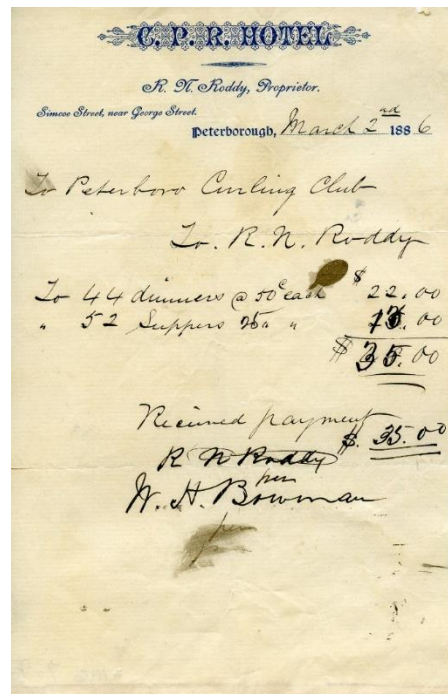 C. P. R. HOTEL
R. N. Roddy, Proprietor.
Simcoe Street, near George Street.
Peterborough, March 2nd 1886
To Peterboro Curling Club
To. R. N. Roddy
To 44 dinners @ 50c each $ 22.00
" 52 Suppers 25c " 13.00
$ 35.00
Received payment
$. 35.00
R N Roddy
per
W. H. Bowman
per